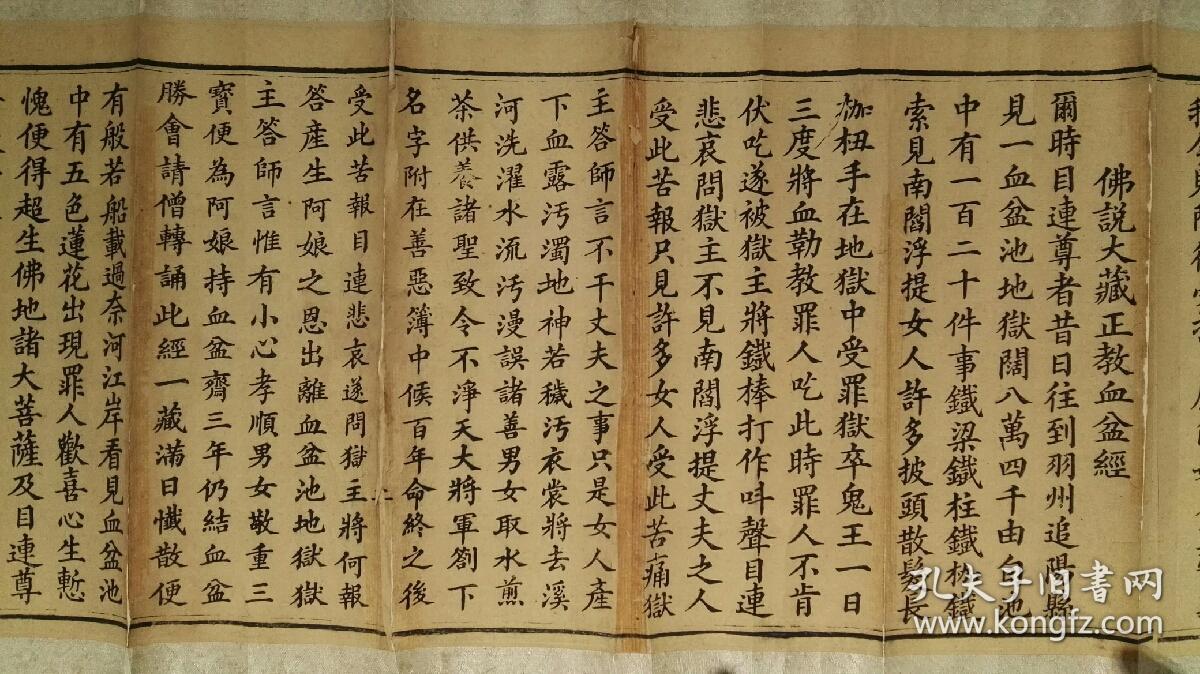 佛說大藏正教血盆經
爾時目連尊者昔日往到羽州追陽縣
見一血盆池地獄闊八萬四千由旬池
中有一百二十件事鐵梁鐵柱鐵枷鐵
索見南閻浮提女人許多披頭散髮長
枷杻手在地獄中受罪獄卒鬼王一日
三度將血勒教罪人吃此時罪人不肯
伏吃遂被獄主將鐵棒打作呌聲目連
悲哀問獄主不見南閻浮提丈夫之人
受此苦報只見許多女人受此苦痛獄
主答師言不干丈夫之事只是女人產
下血露汚濁地神若穢汚衣裳將去溪
河洗濯水流汚漫誤諸善男女取水煎
茶供養諸聖致令不淨天大將軍劄下
名字附在善惡簿中候百年命終之後
受此苦報目連悲哀遂問獄主將何報
答產生阿娘之恩出離血盆池地獄獄
主答師言惟有小心孝順男女敬重三
寳便為阿娘持血盆齋三年仍結血盆
勝會請僧轉誦此經一藏滿日懺散便
有般若船載過奈河江岸看見血盆池
中有五色蓮花出現罪人歡喜心生慙
愧便得超生佛地諸大菩薩及目連尊
孔夫子旧书网
www.kongfz.com